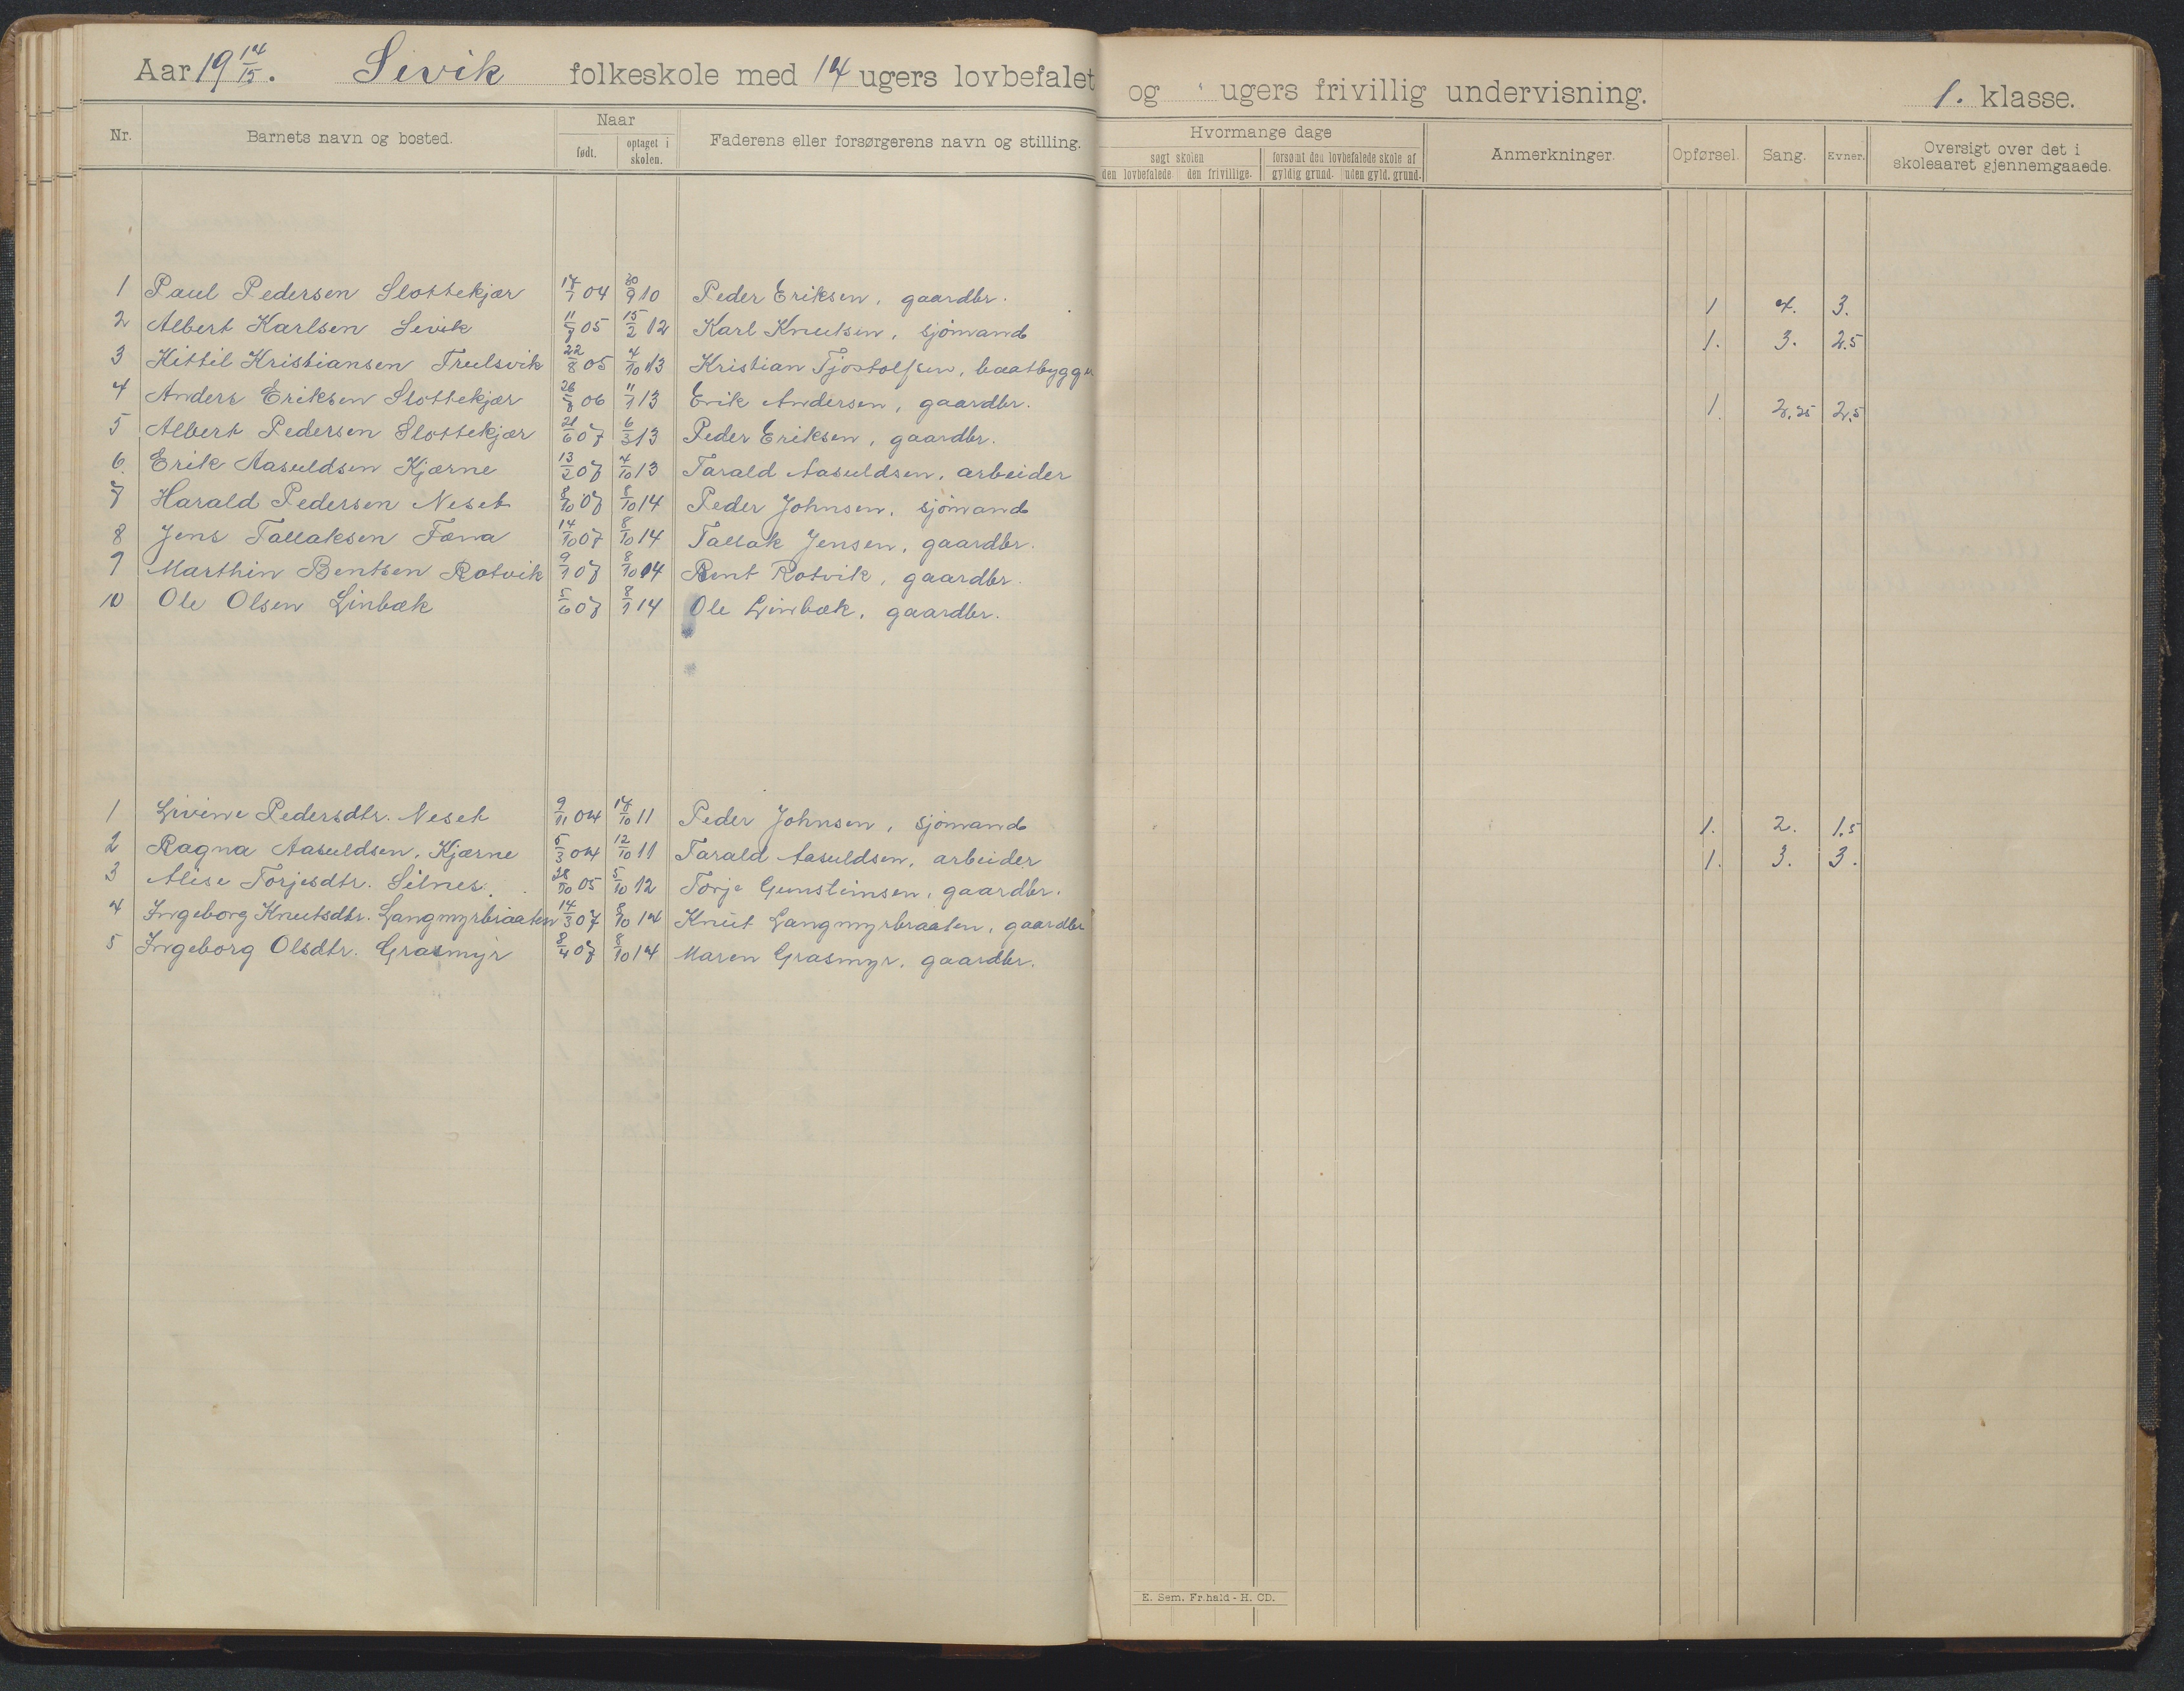 Aar 19 14/15. Sevik folkeskole med 14 ugers lovbefalet og ugers frivillig undervisning. 1. klasse.
Nr. Barnets navn og bosted. Naar født. optaget i skolen. Faderens eller forsørgerens navn og stilling. Hvormange dage søgt skolen den lovbefalede. den frivillige. forsømt den lovbefalede skole af gyldig grund. uden gyld. grund. Anmerkninger. Opførsel. Sang. Evner. Oversigt over det i skoleaaret gjennemgaaede.
1 Paul Pedersen Slottekjær 17/1 04 20/9 10 Peder Eriksen, gaardbr. 1 4. 3.
2 Albert Karlsen Sevik 11/8 05 15/2 12 Karl Knutsen, sjömand 1. 3. 2.5
3 Kittil Kristiansen Trulsvik 22/8 05 4/10 13 Kristian Tjostolfsen, baatbygger
4 Anders Eriksen Slottekjær 26/8 06 11/1 13 Erik Andersen, gaardbr. 1. 2.25 2.5
5 Albert Pedersen Slottekjær 21/6 07 6/3 13 Peder Eriksen, gaardbr.
6. Erik Aasuldsen Kjærne 13/2 07 4/10 13 Tarald Aasuldsen, arbeider
7 Harald Pedersen Neset 8/10 07 8/10 14 Peder Johnsen, sjömand
8 Jens Tallaksen Fæna 14/10 07 8/10 14 Tallak Jensen, gaardbr.
9 Marthin Bentsen Rotvik 9/1 07 8/10 14 Bent Rotvik, gaardbr.
10 Ole Olsen Linbæk 5/6 07 8/1 14 Ole Linbæk, gaardbr.
1 Livine Pedersdtr. Neset 9/11 04 17/10 11 Peder Johnsen, sjömand 1. 2. 1.5
2 Ragna Aasuldsen, Kjærne 5/3 04 12/10 11 Tarald Aasuldsen, arbeider 1. 3. 3.
3 Alise Torjesdtr. Silnes. 28/10 05 5/10 12 Torje Gunsteinsen, gaardbr.
4 Ingeborg Knutsdtr. Langmyrbraaten 14/3 07 8/10 14 Knut Langmyrbraaten, gaardbr
5 Ingeborg Olsdtr. Grasmyr 8/4 07 8/10 14 Maren Grasmyr, gaardbr.
E. Sem. Fr.hald - H. CD.